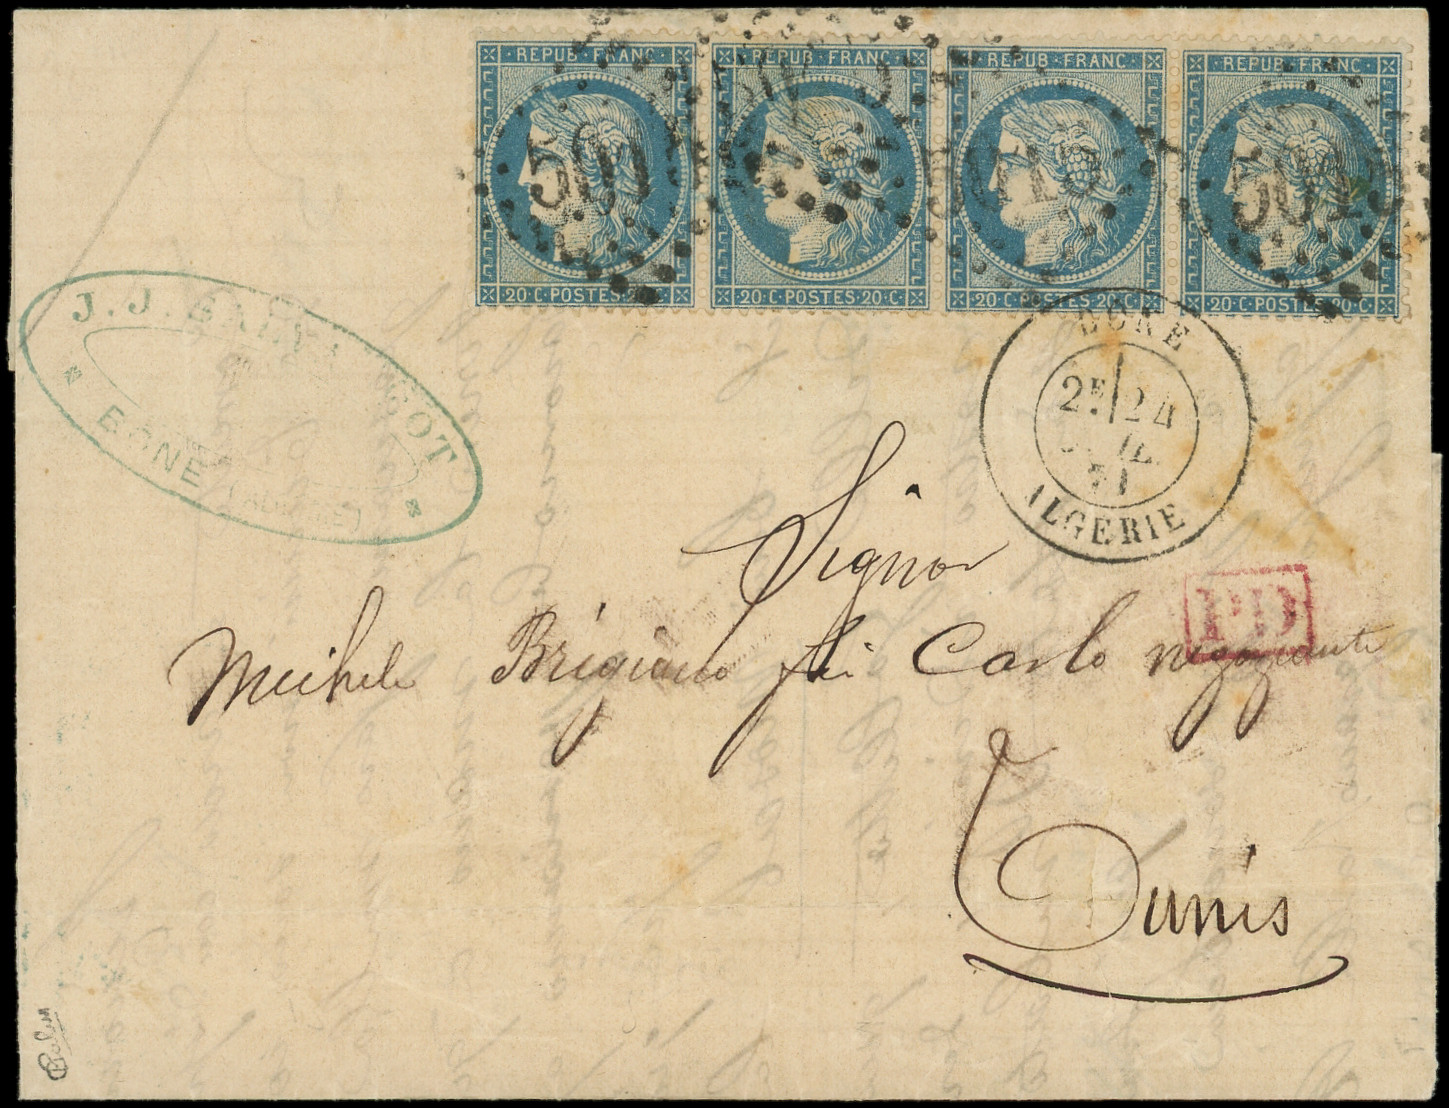 REPUB·FRANC· REPUB·FRANC· REPUB·FRANC· REPUB·FRANC·
5005 5015 5015
20·C·POSTES·20·C· 20·C·POSTES·20·C· 20·C·POSTES·20·C· 20·C·POSTES·20·C·
J. J.
BONE
BONE
2E 24
71
ALGERIE
PD
Signor
Michele Brignano fu Carlo negoziante
Tunis